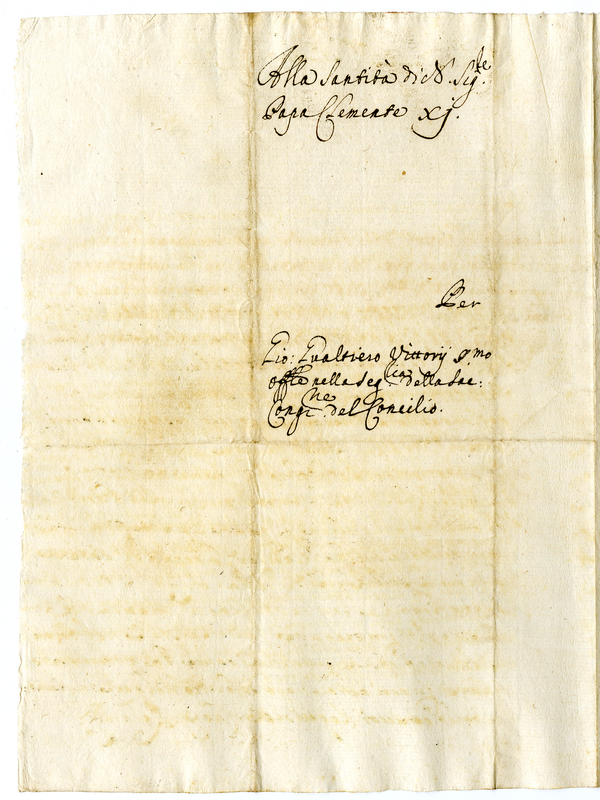 Alla Santità di N. Sig.re
Papa Clemente xj.
Per
Gio: Gualtiero Vittorij p.mo
offle nella Seg.ria della Sac:
Cong.ne del Concilio.